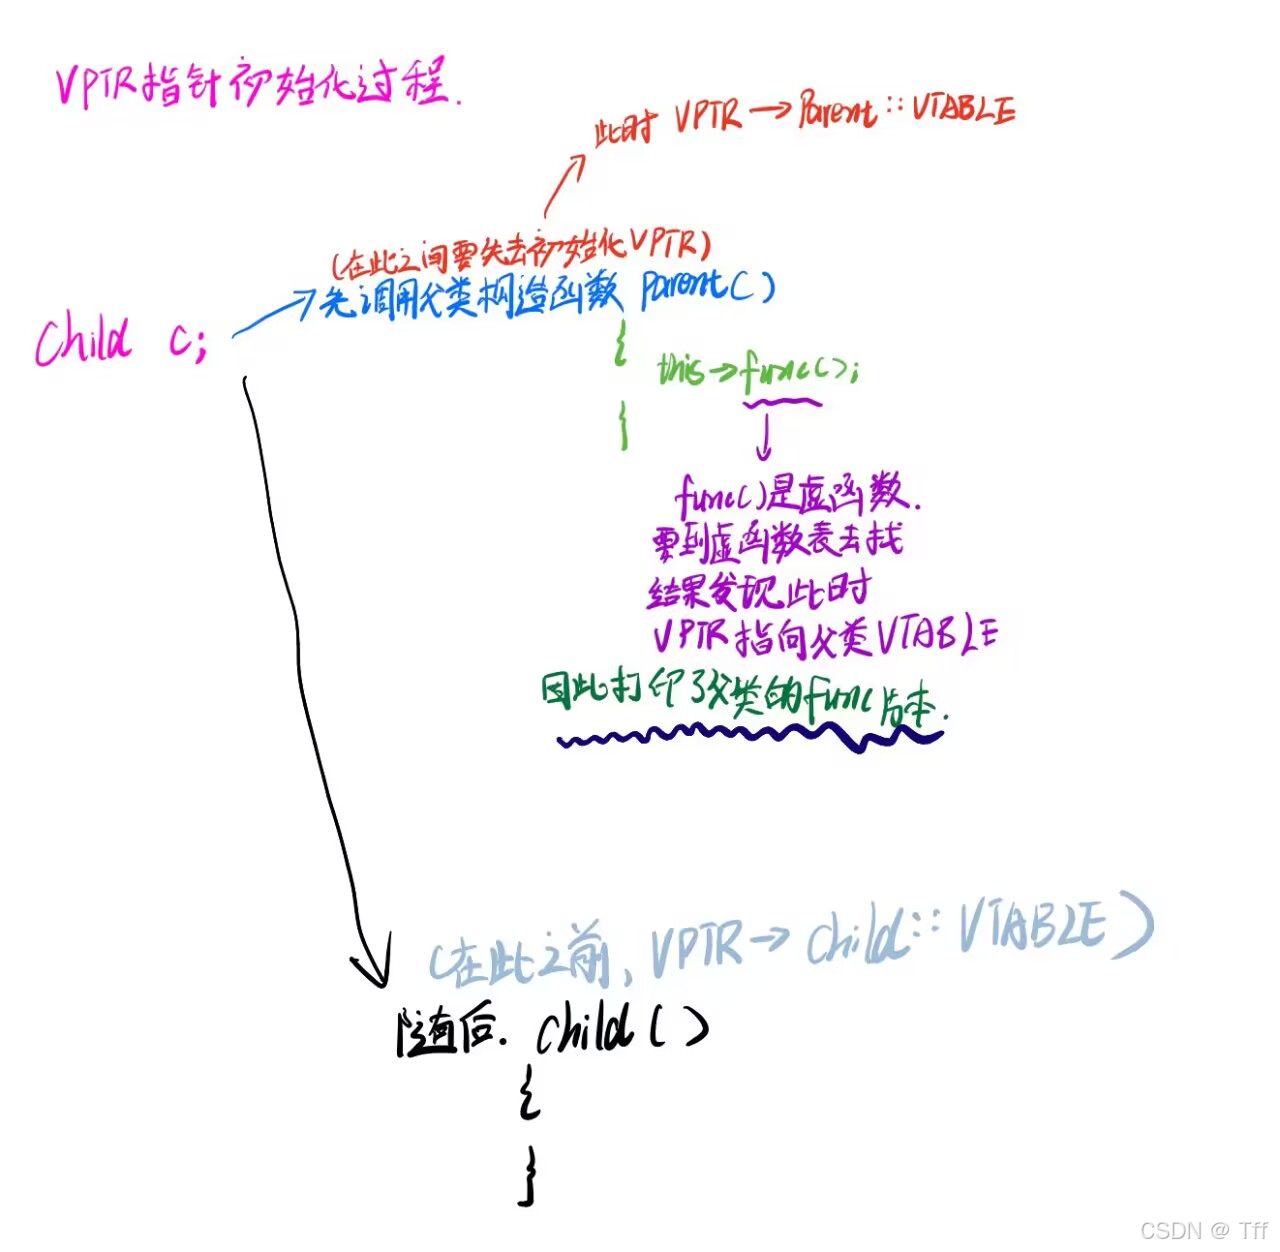 VPTR指针初始化过程.
此时 VPTR→Parent::VTABLE
(在此之间要先去初始化VPTR)
先调用父类构造函数 parent()
Child c;
{
this→func();
}
func()是虚函数.
要到虚函数表去找
结果发现此时
VPTR指向父类VTABLE
因此打印了父类的func版本.
(在此之前, VPTR→child::VTABLE)
随后. child()
{
}
CSDN @ Tff